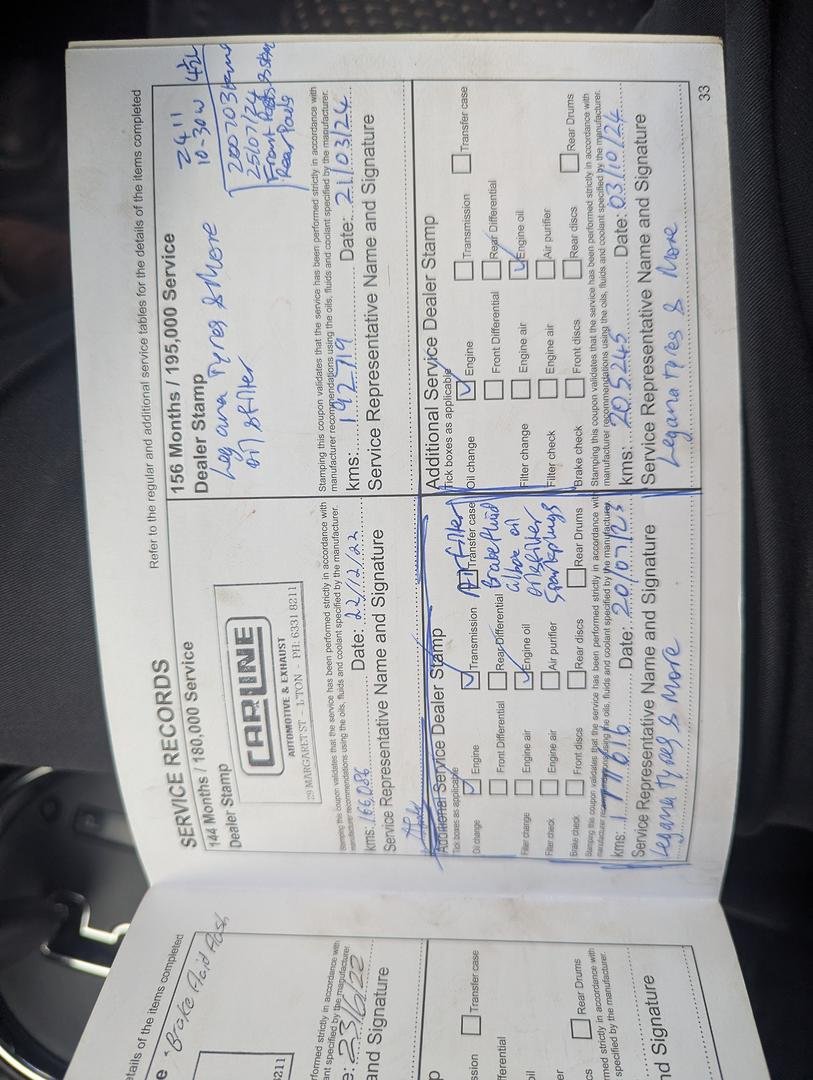 Refer to the regular and additional service tables for the details of the items completed
SERVICE RECORDS
144 Months / 180,000 Service
Dealer Stamp
CARLINE
AUTOMOTIVE & EXHAUST
29 MARGARET ST - L'TON - PH: 6331 8211
Stamping this coupon validates that the service has been performed strictly in accordance with
manufacturer recommendations using the oils, fluids and coolant specified by the manufacturer.
kms: 166,086 Date: 22/12/22
Service Representative Name and Signature
156 Months / 195,000 Service
Dealer Stamp
Legana Tyres & More
oil & filter
2411
10-30W 4½L
200703kms
25/07/24
Front
Rear Pads
Stamping this coupon validates that the service has been performed strictly in accordance with
manufacturer recommendations using the oils, fluids and coolant specified by the manufacturer.
kms: 192719 Date: 21/03/24
Service Representative Name and Signature
Additional Service Dealer Stamp
Tick boxes as applicable
Oil change Engine Transmission Transfer case
Front Differential Rear Differential
Engine oil
Filter change Engine air
Filter check Engine air Air purifier
Brake check Front discs Rear discs Rear Drums
Air filter
Brake fluid
oil
Oil & filter
Spark plugs
Stamping this coupon validates that the service has been performed strictly in accordance with
manufacturer recommendations using the oils, fluids and coolant specified by the manufacturer.
kms: Date: 20/07/23
Service Representative Name and Signature
Legana Tyres & More
Additional Service Dealer Stamp
Tick boxes as applicable
Oil change Engine Transmission Transfer case
Front Differential Rear Differential
Filter change Engine air Engine oil
Filter check Engine air Air purifier
Brake check Front discs Rear discs Rear Drums
Stamping this coupon validates that the service has been performed strictly in accordance with
manufacturer recommendations using the oils, fluids and coolant specified by the manufacturer.
kms: 205245 Date: 03/10/24
Service Representative Name and Signature
Legana Tyres & More
33
details of the items completed
Brake Fluid Flush
8211
formed strictly in accordance with
ant specified by the manufacturer.
23/6/22
and Signature
Transfer case
Rear Drums
formed strictly in accordance with
specified by the manufacturer.
nd Signature